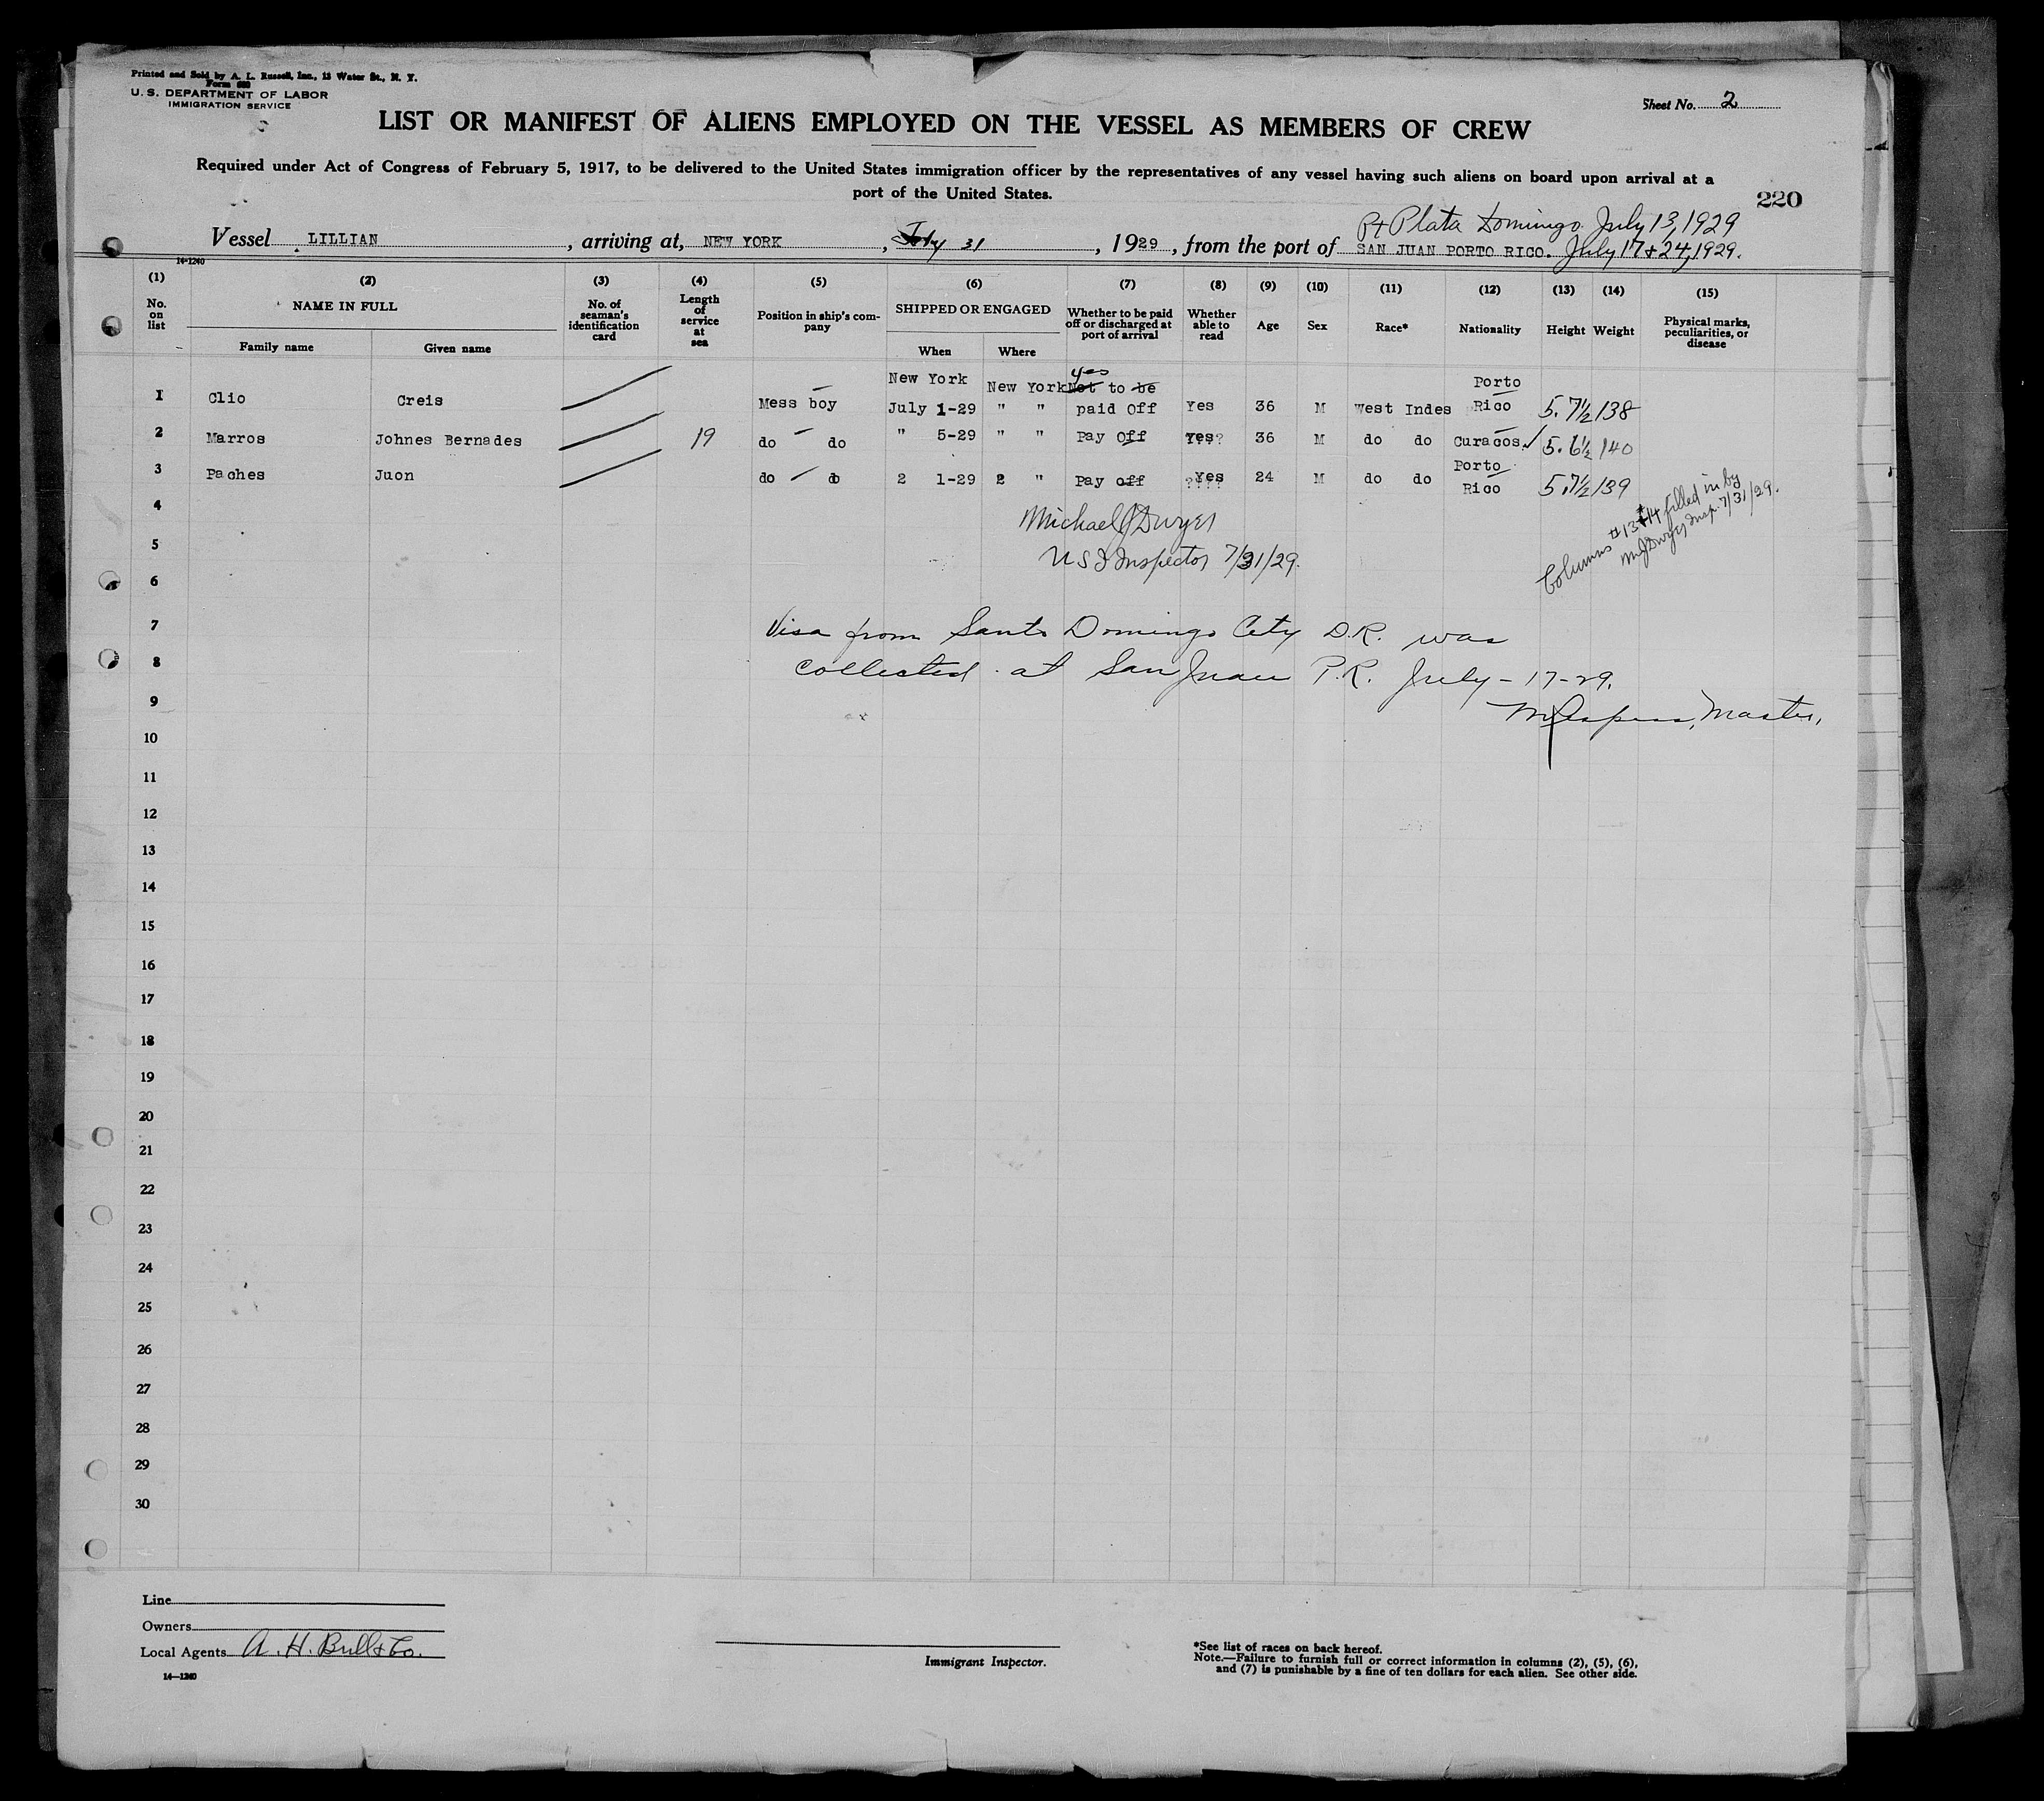 Printed and Sold by A. L. Russell, Inc., 13 Water St., N. Y.
Form 680
U. S. DEPARTMENT OF LABOR
IMMIGRATION SERVICE
Sheet No. 2
LIST OR MANIFEST OF ALIENS EMPLOYED ON THE VESSEL AS MEMBERS OF CREW
Required under Act of Congress of February 5, 1917, to be delivered to the United States immigration officer by the representatives of any vessel having such aliens on board upon arrival at a
port of the United States.
220
Pt Plata Domingo July 13, 1929
Vessel LILLIAN, arriving at, NEW YORK, July 31, 1929, from the port of SAN JUAN PORTO RICO. July 17 + 24, 1929.
14-1240
(1) (2) (3) (4) (5) (6) (7) (8) (9) (10) (11) (12) (13) (14) (15)
No. on list NAME IN FULL No. of seaman's identification card Length of service at sea Position in ship's company SHIPPED OR ENGAGED Whether to be paid off or discharged at port of arrival Whether able to read Age Sex Race* Nationality Height Weight Physical marks, peculiarities, or disease
Family name Given name When Where
New York yes Porto
1 Clio Creis Mess boy July 1-29 New York " " Not to be paid Off Yes 36 M West Indes Rico 5. 7½ 138
2 Marros Johnes Bernades 19 do do " 5-29 " " Pay Off Yes? 36 M do do Curacos. 5. 6½ 140
3 Paches Juon do do 2 1-29 2 " Pay off Yes 24 M do do Porto Rico 5. 7½ 139
4
Michael J Dwyer
5
U S I Inspector 7/31/29.
Columns #13+14 filled in by
MJDwyer Insp. 7/31/29.
6
7 Visa from Santo Domingo City D.R. was
8 collected at San Juan P.R. July-17-29.
9 Master,
10
11
12
13
14
15
16
17
18
19
20
21
22
23
24
25
26
27
28
29
30
Line
Owners
Local Agents A. H. Bull & Co.
14—1240
Immigrant Inspector.
*See list of races on back hereof.
Note.—Failure to furnish full or correct information in columns (2), (5), (6),
and (7) is punishable by a fine of ten dollars for each alien. See other side.